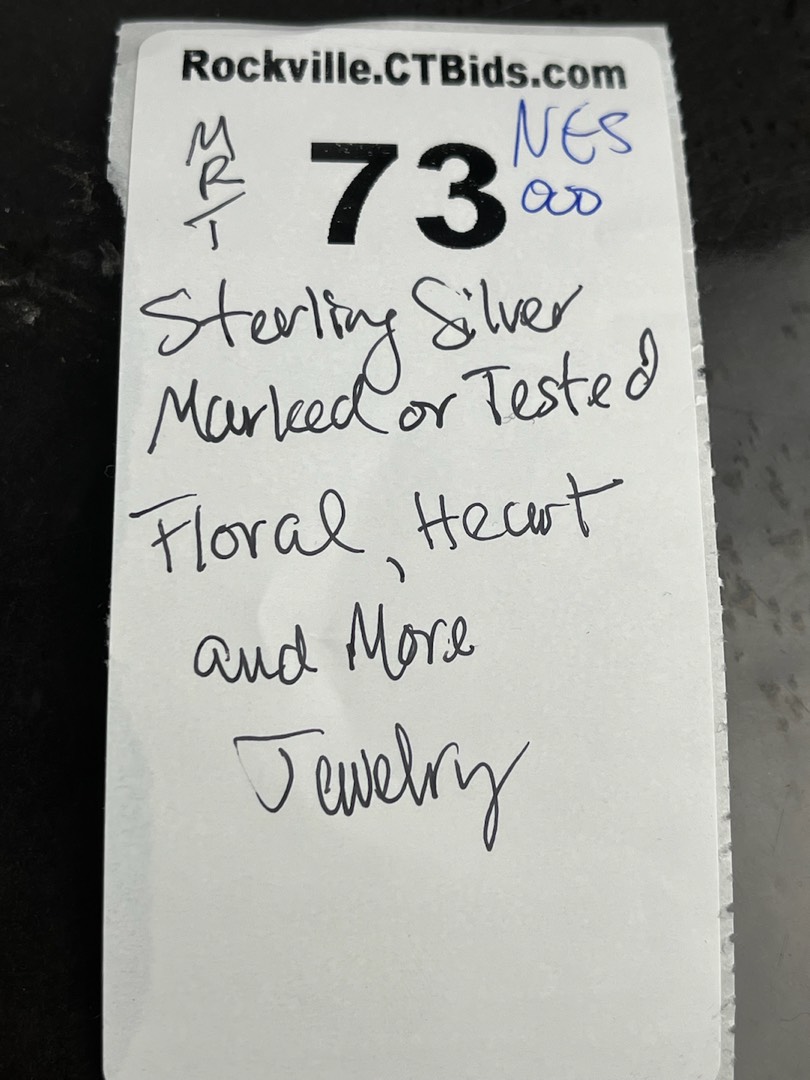 Rockville.CTBids.com
M
R
T
73
NES
000
Sterling Silver
Marked or Tested
Floral, Heart
and More
Jewelry